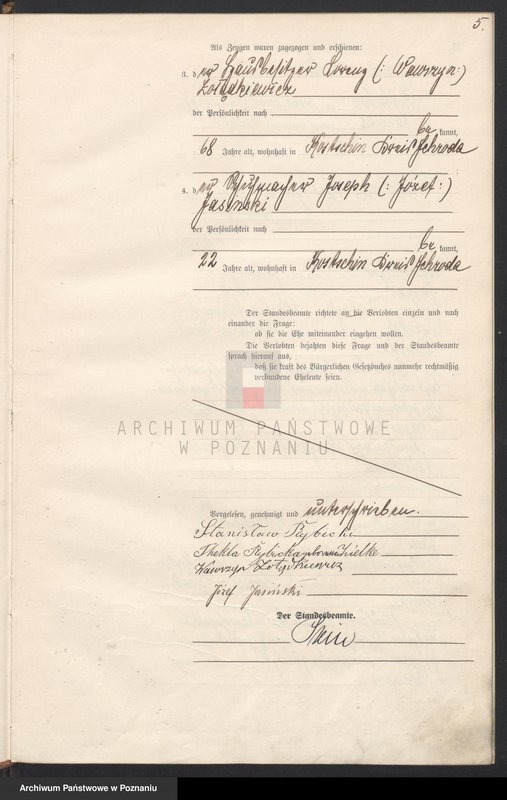 5.
Als Zeugen waren zugezogen und erschienen:
3. der Hausbesitzer Lorenz (: Wawrzyn :)
Żołądkiewicz
der Persönlichkeit nach
be kannt,
68 Jahre alt, wohnhaft in Kostschin Kreis Schroda
4. der Schuhmacher Joseph (: Józef :)
Jasinski
der Persönlichkeit nach
be kannt,
22 Jahre alt, wohnhaft in Kostschin Kreis Schroda
Der Standesbeamte richtete an die Verlobten einzeln und nach
einander die Frage:
ob sie die Ehe miteinander eingehen wollen.
Die Verlobten bejahten diese Frage und der Standesbeamte
sprach hierauf aus,
daß sie kraft des Bürgerlichen Gesetzbuches nunmehr rechtmäßig
verbundene Eheleute seien.
ARCHIWUM PAŃSTWOWE
W POZNANIU
Vorgelesen, genehmigt und unterschrieben.
Stanisław Rybicki
Thekla Rybicka geborene Zielke
Wawrzyn Żołądkiewicz
Józef Jasiński
Der Standesbeamte.
Archiwum Państwowe w Poznaniu